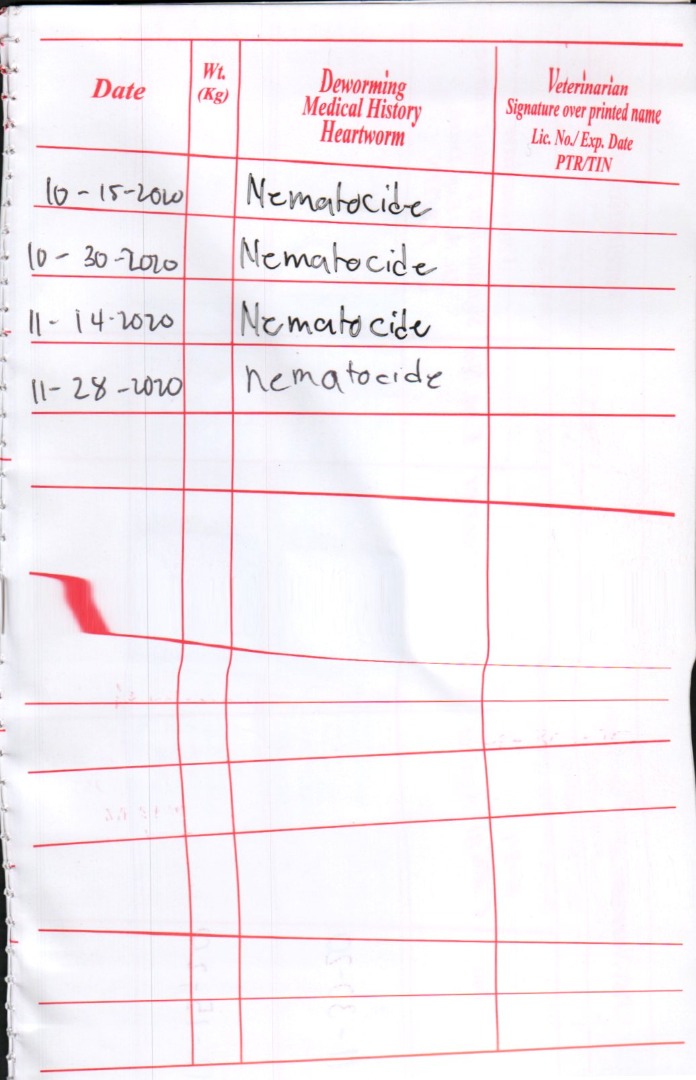 Date
Wt.
(Kg)
Deworming
Medical History
Heartworm
Veterinarian
Signature over printed name
Lic. No./ Exp. Date
PTR/TIN
10-15-2020 Nematocide
10-30-2020 Nematocide
11-14-2020 Nematocide
11-28-2020 nematocide